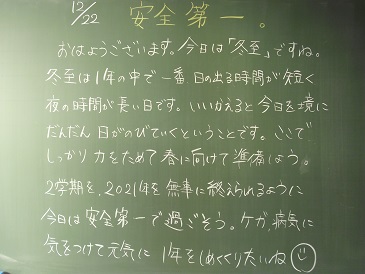 12/22 安全第一。
おはようございます。今日は「冬至」ですね。
冬至は1年の中で一番日の出る時間が短く
夜の時間が長い日です。いいかえると今日を境に
だんだん日がのびていくということです。ここで
しっかり力をためて春に向けて準備しよう。
2学期を、2021年を無事に終えられるように
今日は安全第一で過ごそう。ケガ、病気に
気をつけて元気に1年をしめくくりたいね